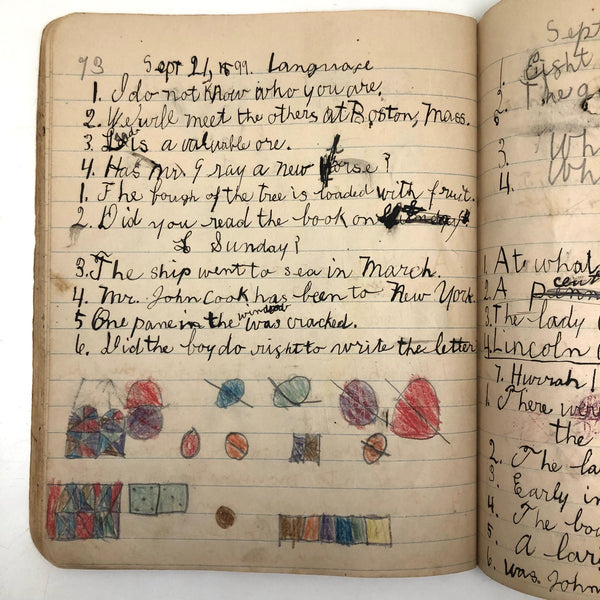 93 Sept 21, 1899. Language
1. I do not know who you are.
2. We will meet the others at Boston, Mass.
3. Lead is a valuable ore.
4. Has Mr. Gray a new horse?
1. The bough of the tree is loaded with fruit.
2. Did you read the book on
Sunday?
3. The ship went to sea in March.
4. Mr. John Cook has been to New York.
5 One pane in the window was cracked.
6. Did the boy do right to write the letter
Sept
1. Eight
2. The
3. Wh
4. Wh
1. At what
2. A cent
3. The lady
4. Lincoln
7. Hurrah!
1. There were
the
2. The la
3. Early in
4. The boo
5. A lar
6. Was John